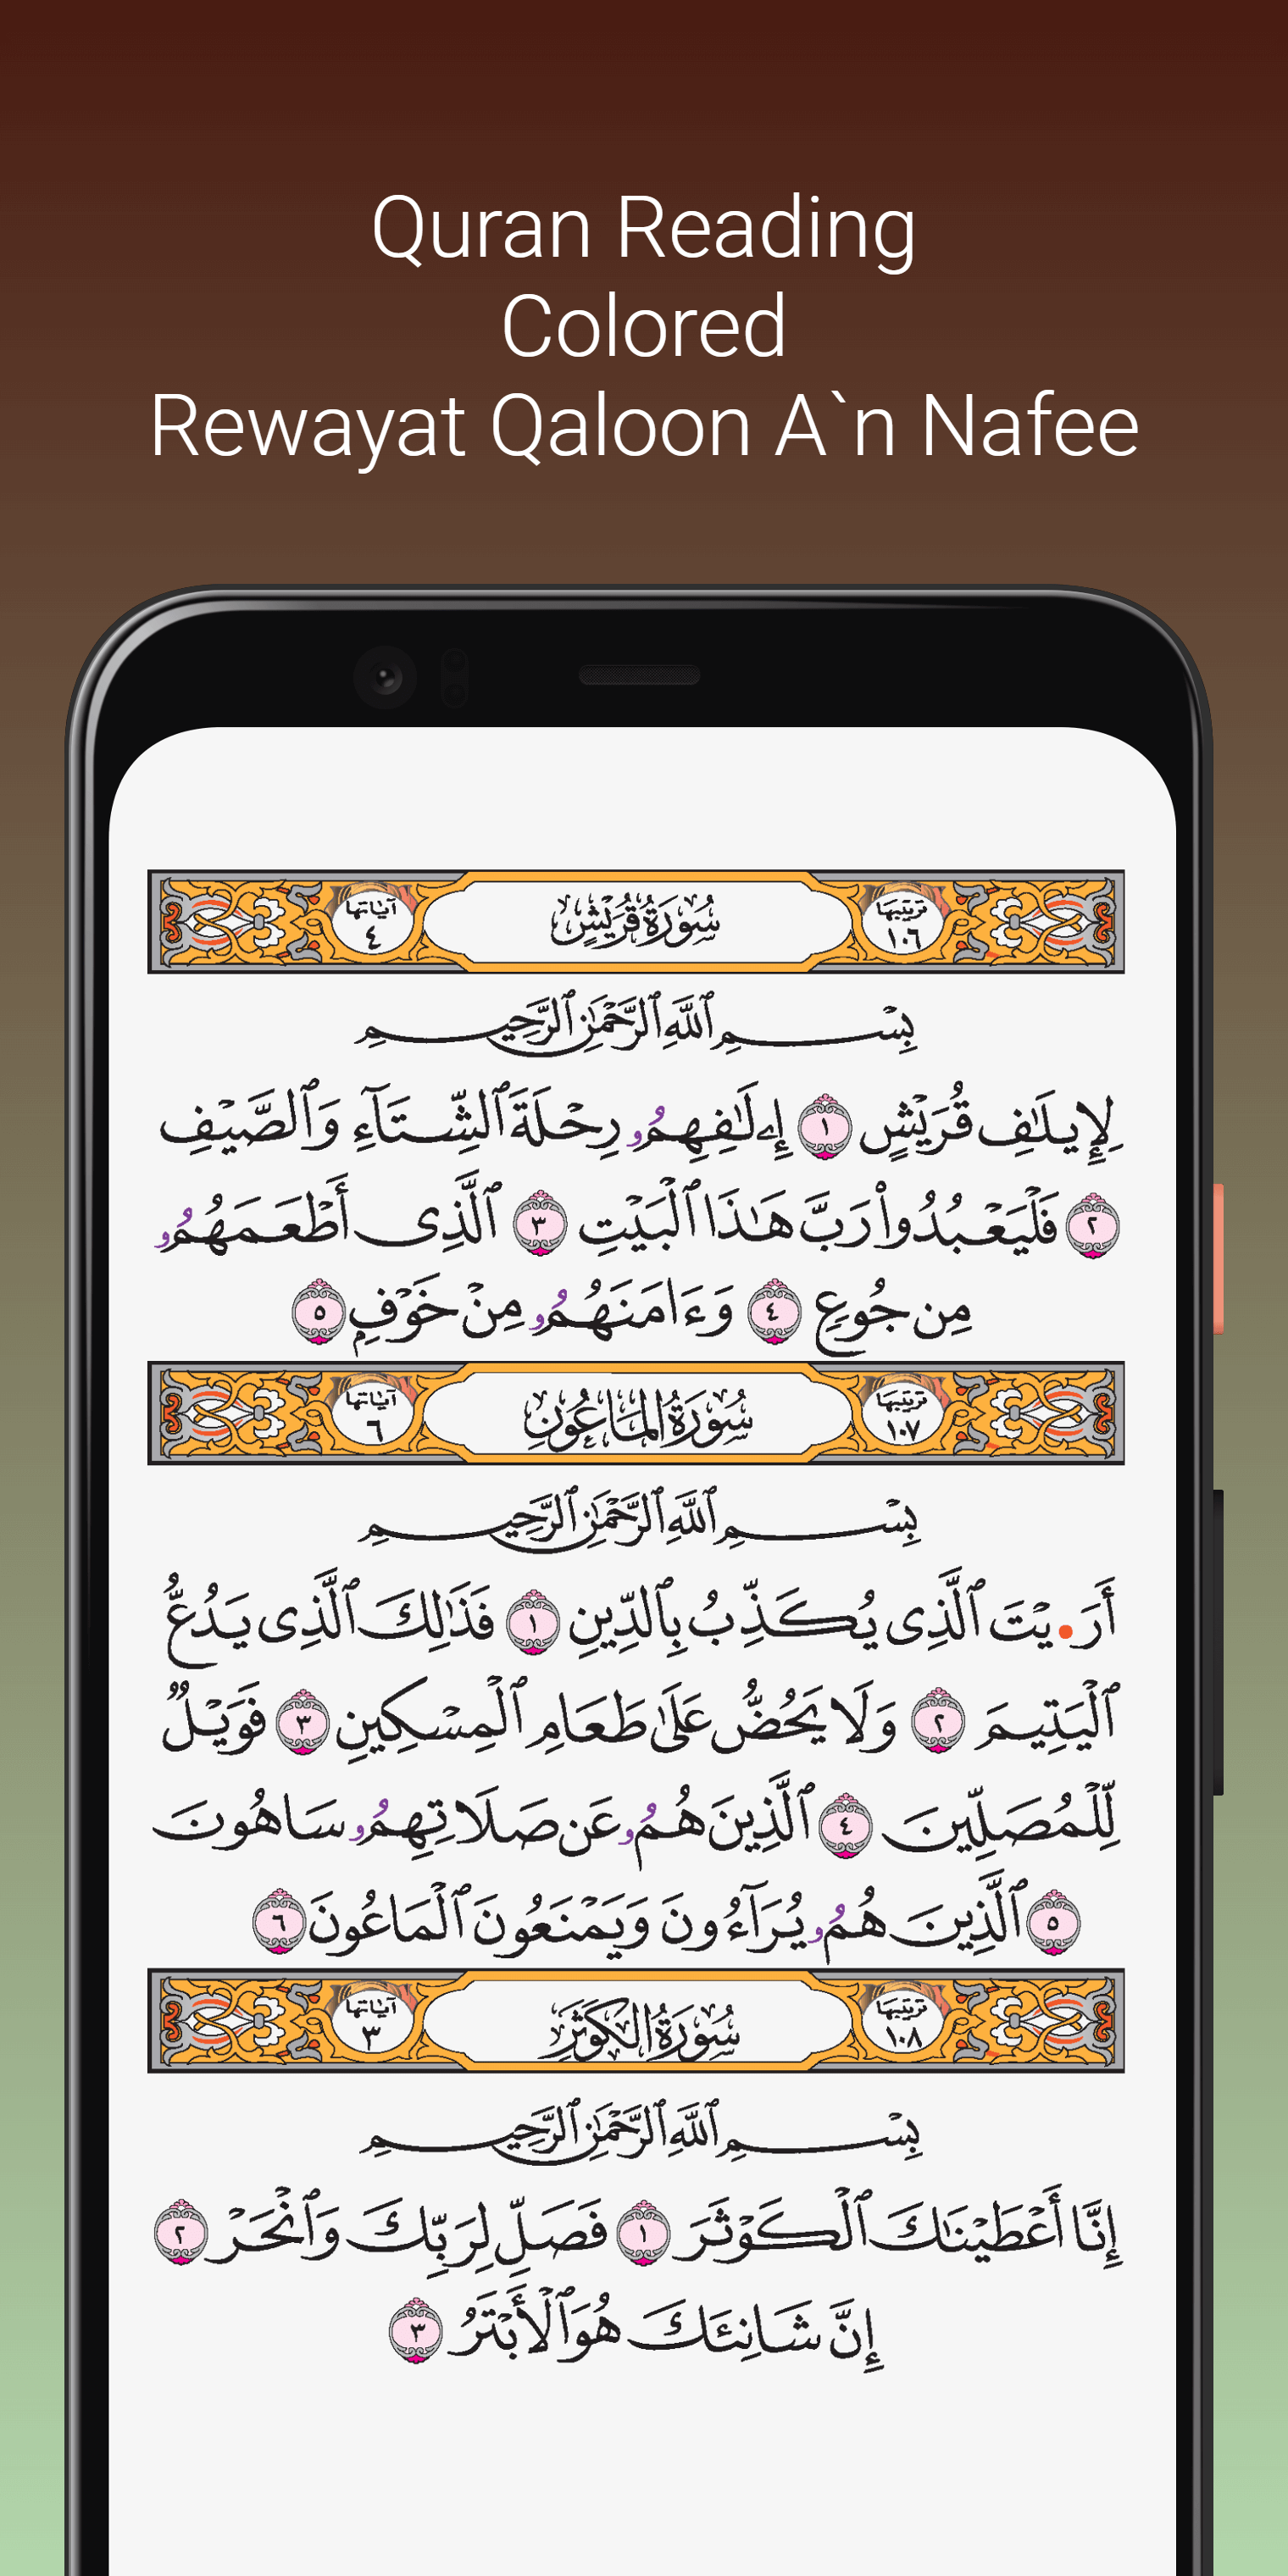 Quran Reading
Colored
Rewayat Qaloon A`n Nafee
ترتيبها ١٠٦ سُورَةُ قُرَيْشٍ آياتها ٤
بِسْمِ ٱللَّهِ ٱلرَّحْمَٰنِ ٱلرَّحِيمِ
لِإِيلَٰفِ قُرَيْشٍ ١ إِۦلَٰفِهِمُۥ رِحْلَةَ ٱلشِّتَآءِ وَٱلصَّيْفِ
٢ فَلْيَعْبُدُواْ رَبَّ هَٰذَا ٱلْبَيْتِ ٣ ٱلَّذِى أَطْعَمَهُمُۥ
مِن جُوعٍ ٤ وَءَامَنَهُمُۥ مِنْ خَوْفٍ ٥
ترتيبها ١٠٧ سُورَةُ المَاعُونِ آياتها ٦
بِسْمِ ٱللَّهِ ٱلرَّحْمَٰنِ ٱلرَّحِيمِ
أَرَ•يْتَ ٱلَّذِى يُكَذِّبُ بِٱلدِّينِ ١ فَذَٰلِكَ ٱلَّذِى يَدُعُّ
ٱلْيَتِيمَ ٢ وَلَا يَحُضُّ عَلَىٰ طَعَامِ ٱلْمِسْكِينِ ٣ فَوَيْلٌ
لِّلْمُصَلِّينَ ٤ ٱلَّذِينَ هُمُۥ عَن صَلَاتِهِمُۥ سَاهُونَ
٥ ٱلَّذِينَ هُمُۥ يُرَآءُونَ وَيَمْنَعُونَ ٱلْمَاعُونَ ٦
ترتيبها ١٠٨ سُورَةُ الكَوْثَرِ آياتها ٣
بِسْمِ ٱللَّهِ ٱلرَّحْمَٰنِ ٱلرَّحِيمِ
إِنَّا أَعْطَيْنَٰكَ ٱلْكَوْثَرَ ١ فَصَلِّ لِرَبِّكَ وَٱنْحَرْ ٢
إِنَّ شَانِئَكَ هُوَ ٱلْأَبْتَرُ ٣